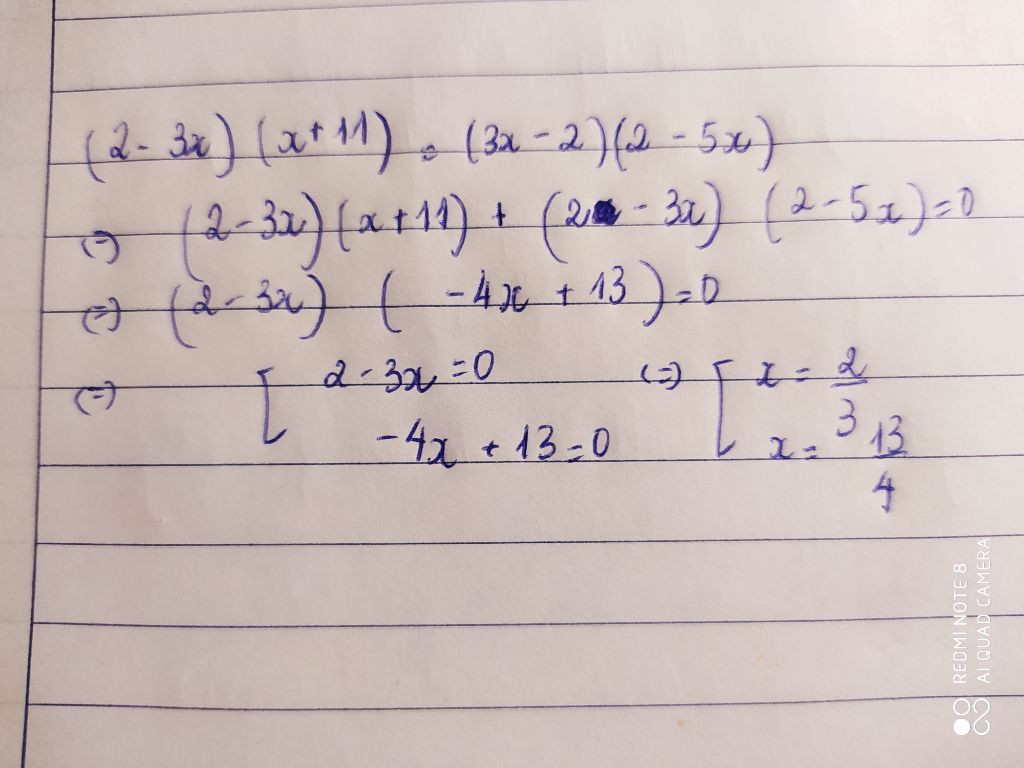 (2 - 3x) (x + 11) = (3x - 2)(2 - 5x)
(=) (2 - 3x)(x + 11) + (2 - 3x) (2 - 5x) = 0
(=) (2 - 3x) ( - 4x + 13 ) = 0
(=) [ 2 - 3x = 0 (=) [ x = 2/3
- 4x + 13 = 0 x = 13/4
REDMI NOTE 8
AI QUAD CAMERA